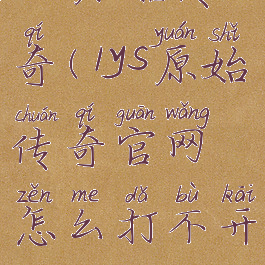 qí yuán shǐ
奇(lys原始
chuán qí guān wǎng
传奇官网
zěn me dǎ bù kāi
怎么打不开